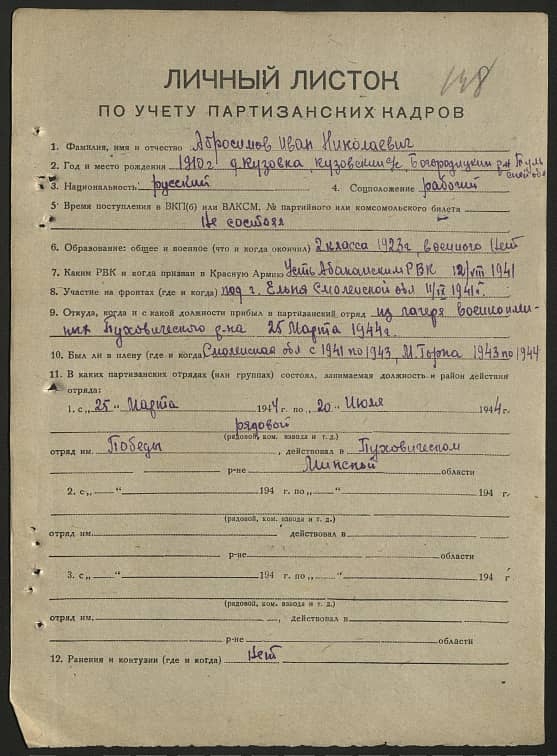 138
ЛИЧНЫЙ ЛИСТОК
ПО УЧЕТУ ПАРТИЗАНСКИХ КАДРОВ
1. Фамилия, имя и отчество Абросимов Иван Николаевич
2. Год и место рождения 1910г д Кузовка, Кузовский с/с Богородицкий р-н Туль
ской обл
3. Национальность русский 4. Соцположение рабочий
5 Время поступления в ВКП(б) или ВЛКСМ, № партийного или комсомольского билета
Не состоял
6. Образование: общее и военное (что и когда окончил) 2 класса 1923г, военного Нет
7. Каким РВК и когда призван в Красную Армию Усть Абаканским РВК 12/VIII 1941
8. Участие на фронтах (где и когда) под г. Ельня Смоленской обл 11/IX 1941г.
9. Откуда, когда и с какой должности прибыл в партизанский отряд из лагеря военноплен
ных Пуховического р-на 25 Марта 1944г.
10. Был ли в плену (где и когда Смоленская обл с 1941 по 1943, М. Горка 1943 по 1944
11. В каких партизанских отрядах (или группах) состоял, занимаемая должность и район действия
отряда:
1. с „25“ Марта 1944 г. по „20“ Июля 1944 г.
рядовой
(рядовой, ком. взвода и т. д.)
отряд им. Победы, действовал в Пуховическом
р-не Минской области
2. с „ “ 194 г. по „ “ 194 г.
(рядовой, ком. взвода и т. д.)
отряд им. действовал в
р-не области
3. с „ “ 194 г. по „ “ 194 г
(рядовой, ком. взвода и т. д.)
отряд им. , действовал в
р-не области
12. Ранения и контузии (где и когда) Нет